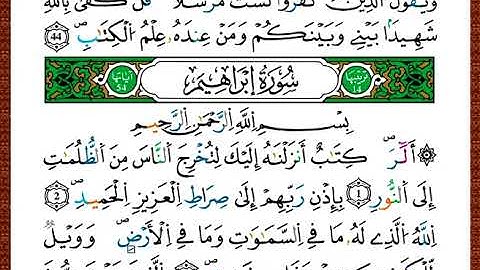 وَيَقُولُ الَّذِينَ كَفَرُوا لَسْتَ مُرْسَلًا قُلْ كَفَىٰ بِاللَّهِ
شَهِيدًا بَيْنِي وَبَيْنَكُمْ وَمَنْ عِندَهُ عِلْمُ الْكِتَابِ ۝44
ترتيبها 14 سُورَةُ إِبْرَاهِيم آياتها 54
بِسْمِ اللَّهِ الرَّحْمَٰنِ الرَّحِيمِ
الٓر كِتَابٌ أَنزَلْنَاهُ إِلَيْكَ لِتُخْرِجَ النَّاسَ مِنَ الظُّلُمَاتِ
إِلَى النُّورِ ۝1 بِإِذْنِ رَبِّهِمْ إِلَىٰ صِرَاطِ الْعَزِيزِ الْحَمِيدِ ۝2
اللَّهُ الَّذِي لَهُ مَا فِي السَّمَاوَاتِ وَمَا فِي الْأَرْضِ وَوَيْلٌ